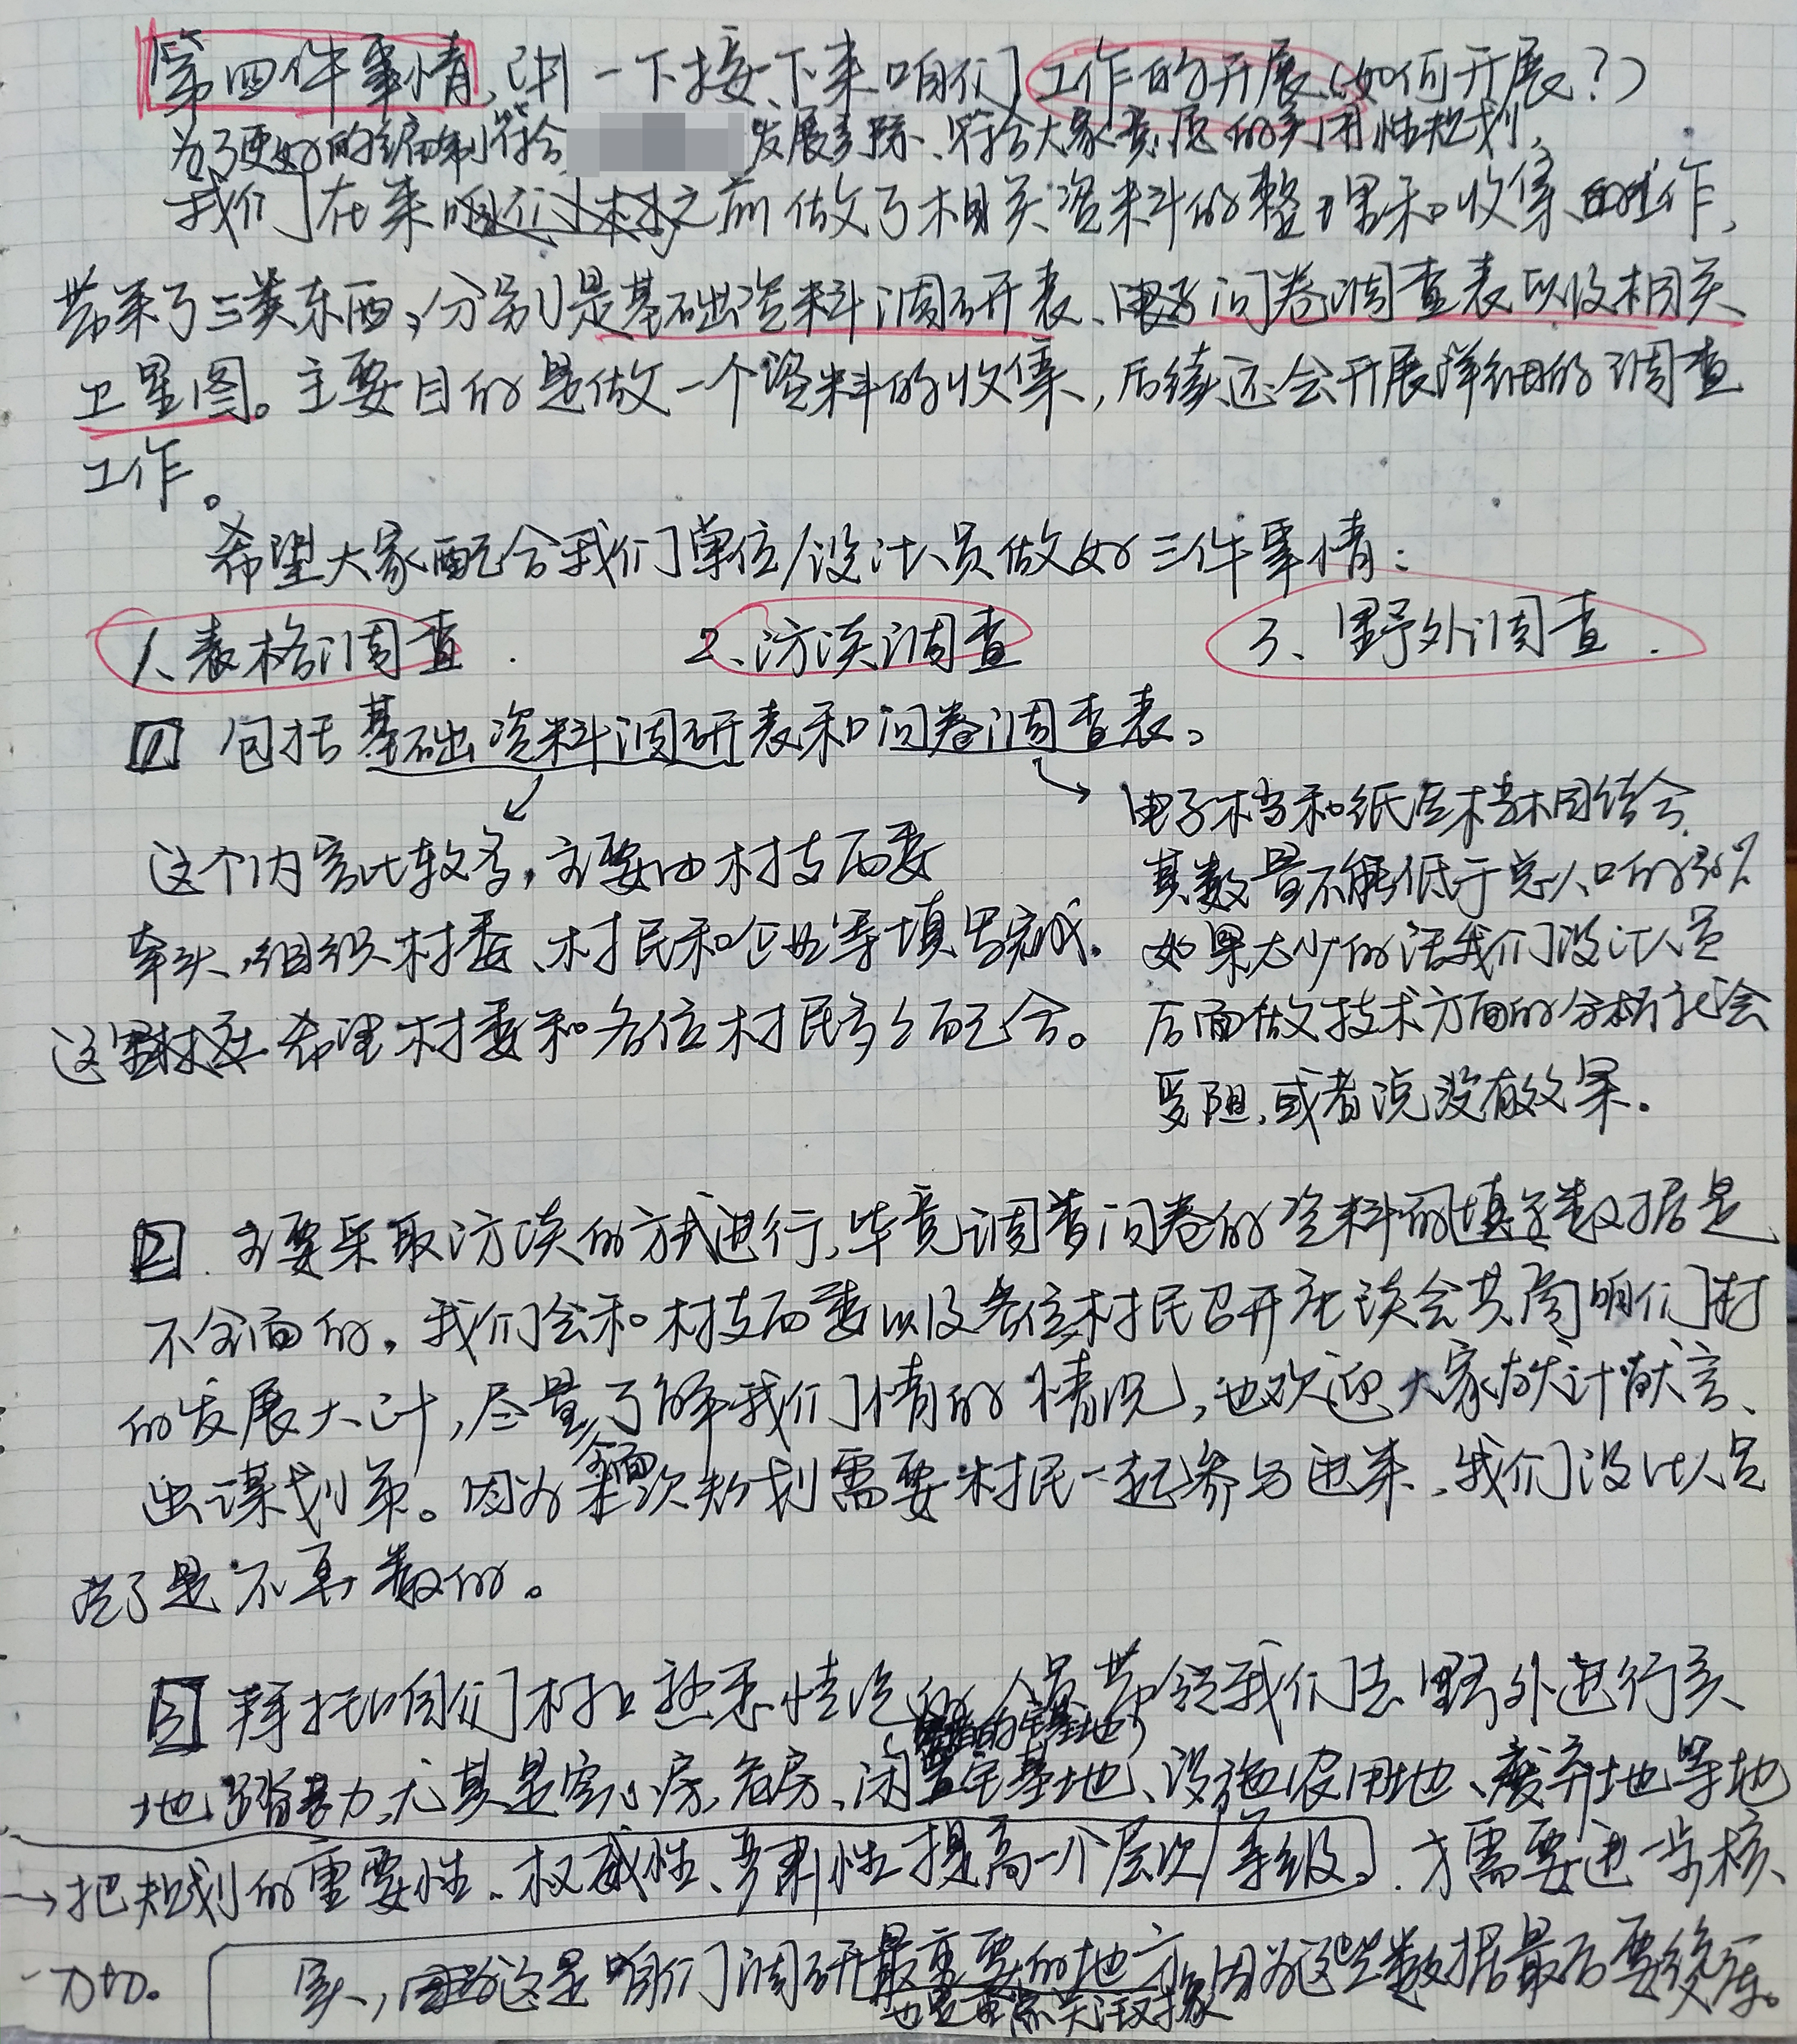 第四件事情,讲一下接下来咱们工作的开展(如何开展?)
为了更好的编制符合 发展 、符合大家意愿的实用性规划,
我们在来咱们村之前做了相关资料的整理和收集的工作,
带来了三类东西,分别是基础资料调研表、电子问卷调查表以及相关
卫星图。主要目的是做一个资料的收集,后续还会开展详细的调查
工作。
希望大家配合我们单位/设计人员做好三件事情:
1、表格调查. 2、访谈调查 3、野外调查.
1 包括基础资料调研表和问卷调查表。
这个内容比较多,主要由村支两委
牵头,组织村委、村民和企业等填写完成.
这里 希望村委和各位村民多多配合。
电子档和纸质档相结合,
其数量不能低于总人口的30%
如果太少的话我们设计人员
后面做技术方面的分析就会
受阻,或者说没有效果.
2. 主要采取访谈的方式进行,毕竟调查问卷的资料的填写数据是
不全面的,我们会和村支两委以及各位村民召开座谈会共商咱们村
的发展大计,尽量全面了解我们 情的情况,也欢迎大家献计献言、
出谋划策。因为本次规划需要村民一起参与进来,我们设计人员
说了是不算数的。
3 拜托咱们村上熟悉情况的人员带领我们去野外进行实
地踏勘,尤其是空心房,危房、闲置宅基地、设施农用地、废弃地等地
→把规划的重要性、权威性、严肃性提高一个层次/等级。.才需要进一步核
实,因为这是咱们调研最重要的地方,因为这些数据最后要统一
也是重点关注对象